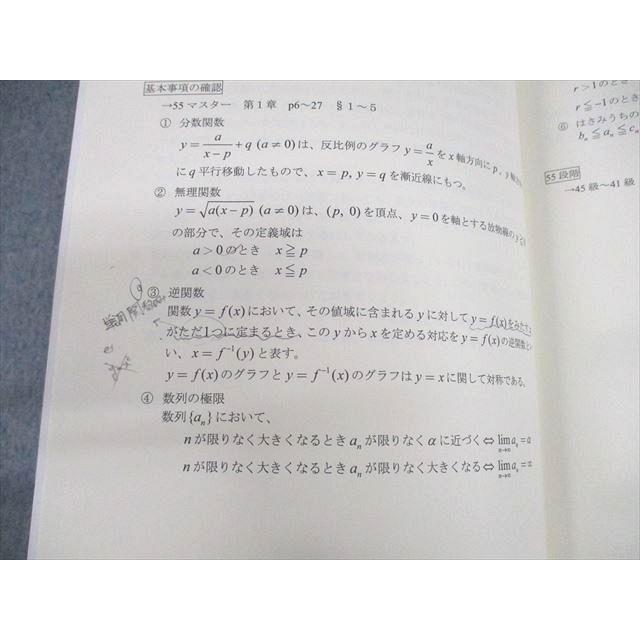 基本事項の確認
→55マスター 第1章 p6～27 §1～5
① 分数関数
y = a/(x−p) + q (a≠0) は、反比例のグラフ y = a/x を x 軸方向に p, y
に q 平行移動したもので、x = p, y = q を漸近線にもつ。
② 無理関数
y = √(a(x−p)) (a≠0) は、(p, 0) を頂点、y = 0 を軸とする放物線の y ≧
の部分で、その定義域は
a > 0 のとき x ≧ p
a < 0 のとき x ≦ p
③ 逆関数
関数 y = f(x) において、その値域に含まれる y に対して y = f(x) をみたす
がただ1つに定まるとき、この y から x を定める対応を y = f(x) の逆関数と
い、x = f⁻¹(y) と表す。
y = f(x) のグラフと y = f⁻¹(x) のグラフは y = x に関して対称である.
④ 数列の極限
数列 {aₙ} において、
n が限りなく大きくなるとき aₙ が限りなく α に近づく ⇔ lim aₙ = α
n→∞
n が限りなく大きくなるとき aₙ が限りなく大きくなる ⇔ lim aₙ = ∞
n→∞
r > 1 のとき
r ≦ −1 のとき
⑥ はさみうちの
bₙ ≦ aₙ ≦ cₙ
55段階
→45級～41級